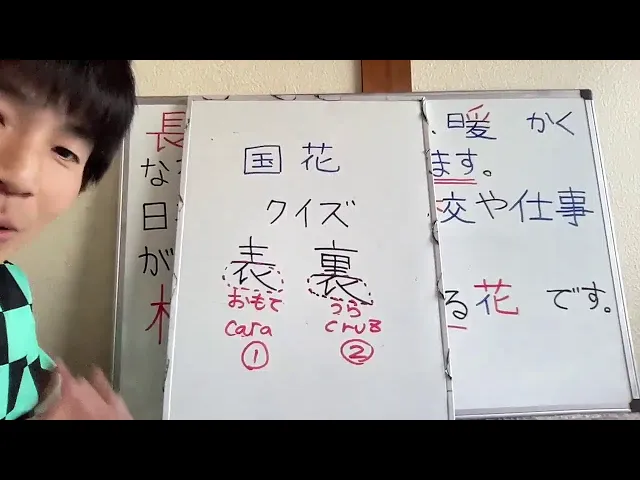 国花
クイズ
表 裏
おもて うら
cara cruz
① ②
長
な
日
が
暖かく
ます。
や仕事
る花です。